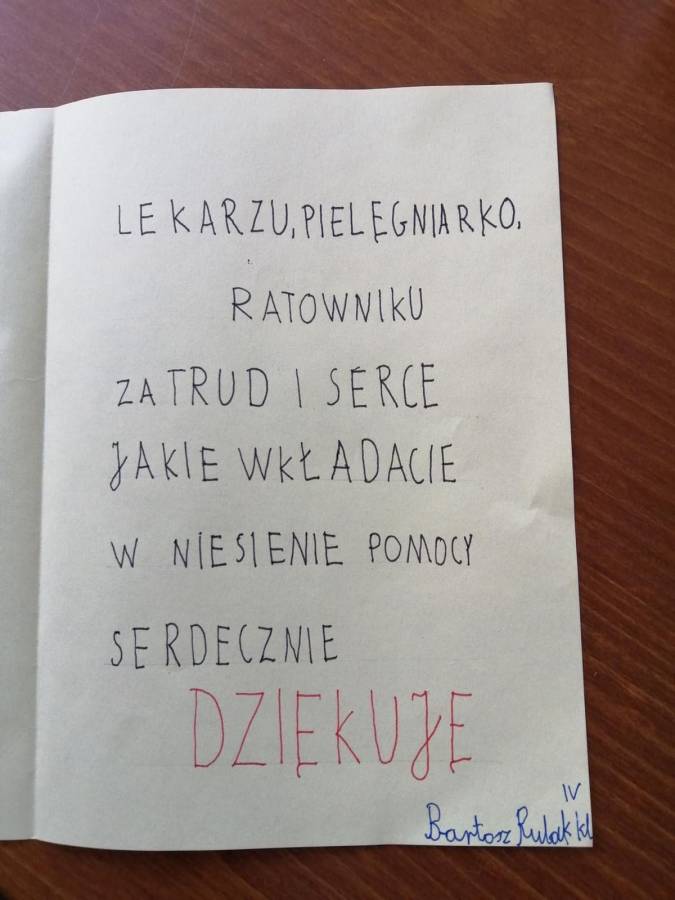 LEKARZU, PIELĘGNIARKO,
RATOWNIKU
ZA TRUD I SERCE
JAKIE WKŁADACIE
W NIESIENIE POMOCY
SERDECZNIE
DZIĘKUJĘ
IV
Bartosz Rulak kl